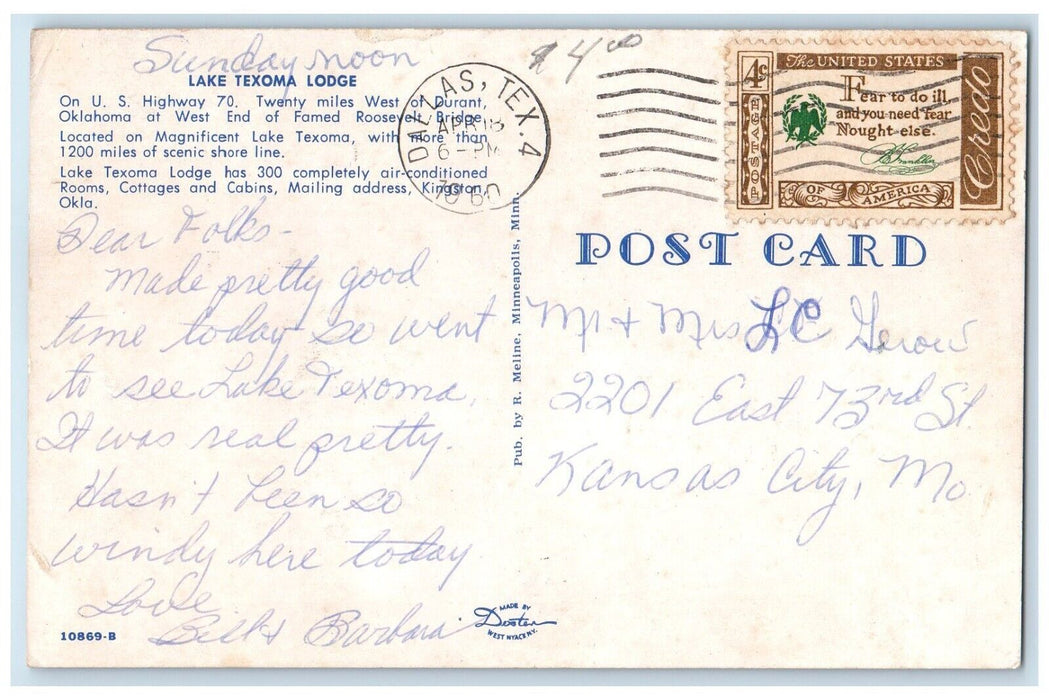 Sunday noon
$4.00
LAKE TEXOMA LODGE
On U. S. Highway 70, Twenty miles West of Durant,
Oklahoma at West End of Famed Roosevelt Bridge.
Located on Magnificent Lake Texoma, with more than
1200 miles of scenic shore line.
Lake Texoma Lodge has 300 completely air-conditioned
Rooms, Cottages and Cabins, Mailing address, Kingston
Okla.
Dear Folks-
Made pretty good
time today so went
to see Lake Texoma.
It was real pretty.
Hasn't been so
windy here today
Love
Barbara
10869-B
MADE BY
Dexter
WEST NYACK N.Y.
Pub. by R. Meline, Minneapolis, Minn.
DALLAS, TEX. 4
APR 18
6-PM
1960
4c
POSTAGE
The UNITED STATES
Fear to do ill,
and you need fear
Nought else.
B Franklin
OF AMERICA
Credo
POST CARD
Mr + Mrs L C Gerow
2201 East 73rd St.
Kansas City, Mo